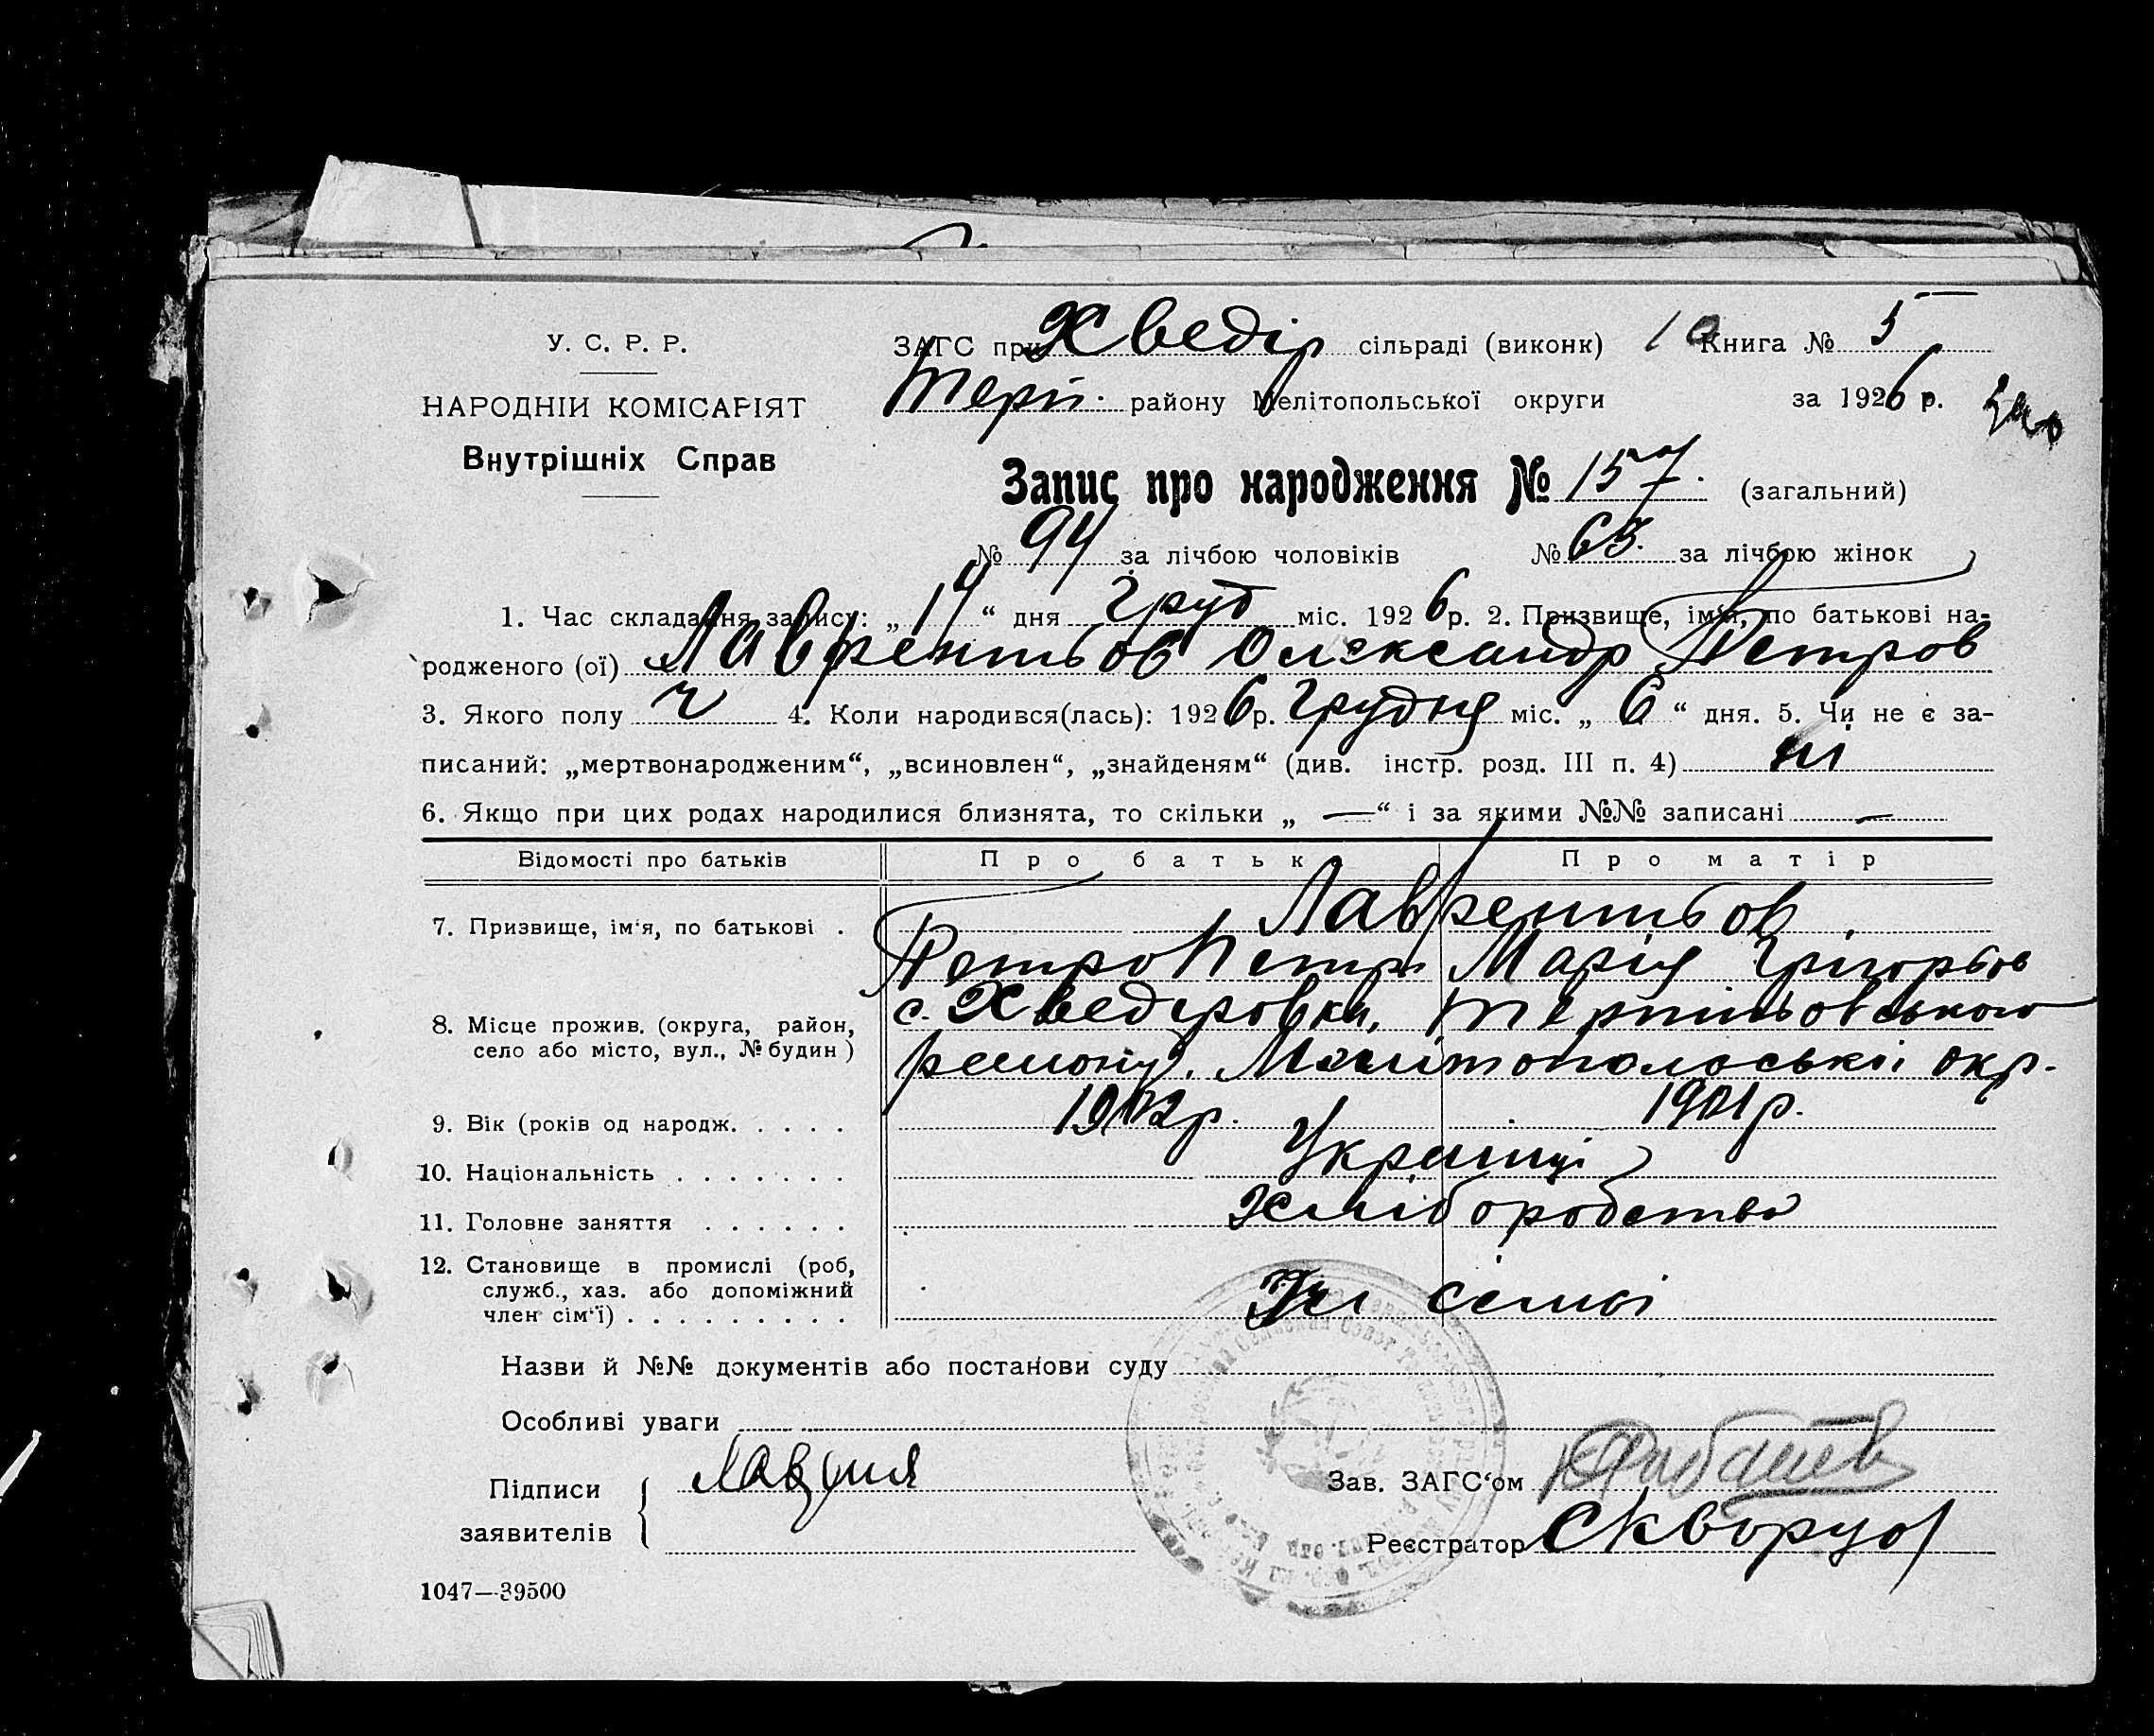 У. С. Р. Р.
НАРОДНІЙ КОМІСАРІЯТ
Внутрішніх Справ
ЗАГС при Хведір сільраді (виконк) 10 Книга № 5
Терп. району Мелітопольської округи за 1926 р.
Запис про народження № 157. (загальний)
№ 94 за лічбою чоловіків № 63. за лічбою жінок
1. Час складання запису: „14“ дня груд міс. 1926 р. 2. Призвище, ім'я, по батькові на-
родженого (ої) Лаврентьов Олександр Петров
3. Якого полу ч 4. Коли народився(лась): 1926 р. грудня міс. „6“ дня. 5. Чи не є за-
писаний: „мертвонародженим“, „всиновлен“, „знайденям“ (див. інстр. розд. III п. 4) ні
6. Якщо при цих родах народилися близнята, то скільки „ — “ і за якими №№ записані —
Відомості про батьків Про батька Про матір
7. Призвище, ім'я, по батькові . Лаврентьов
Петро Петр Марія Грігорьов
8. Місце прожив. (округа, район, село або місто, вул., № будин) с. Хведеровки, Терпіньовського
району. Мелітопольськоі окр.
9. Вік (років од народж. . . . . 1902р. 1901р.
10. Національність . . . . . . . Украінці
11. Головне заняття . . . . . . Хліборобство
12. Становище в промислі (роб,
служб., хаз. або допоміжний
член сім'ї) . . . . . . . . . сімьі
Назви й №№ документів або постанови суду
Особливі уваги
Підписи
заявителів
Зав. ЗАГС'ом
Реєстратор Скворцо
1047—39500